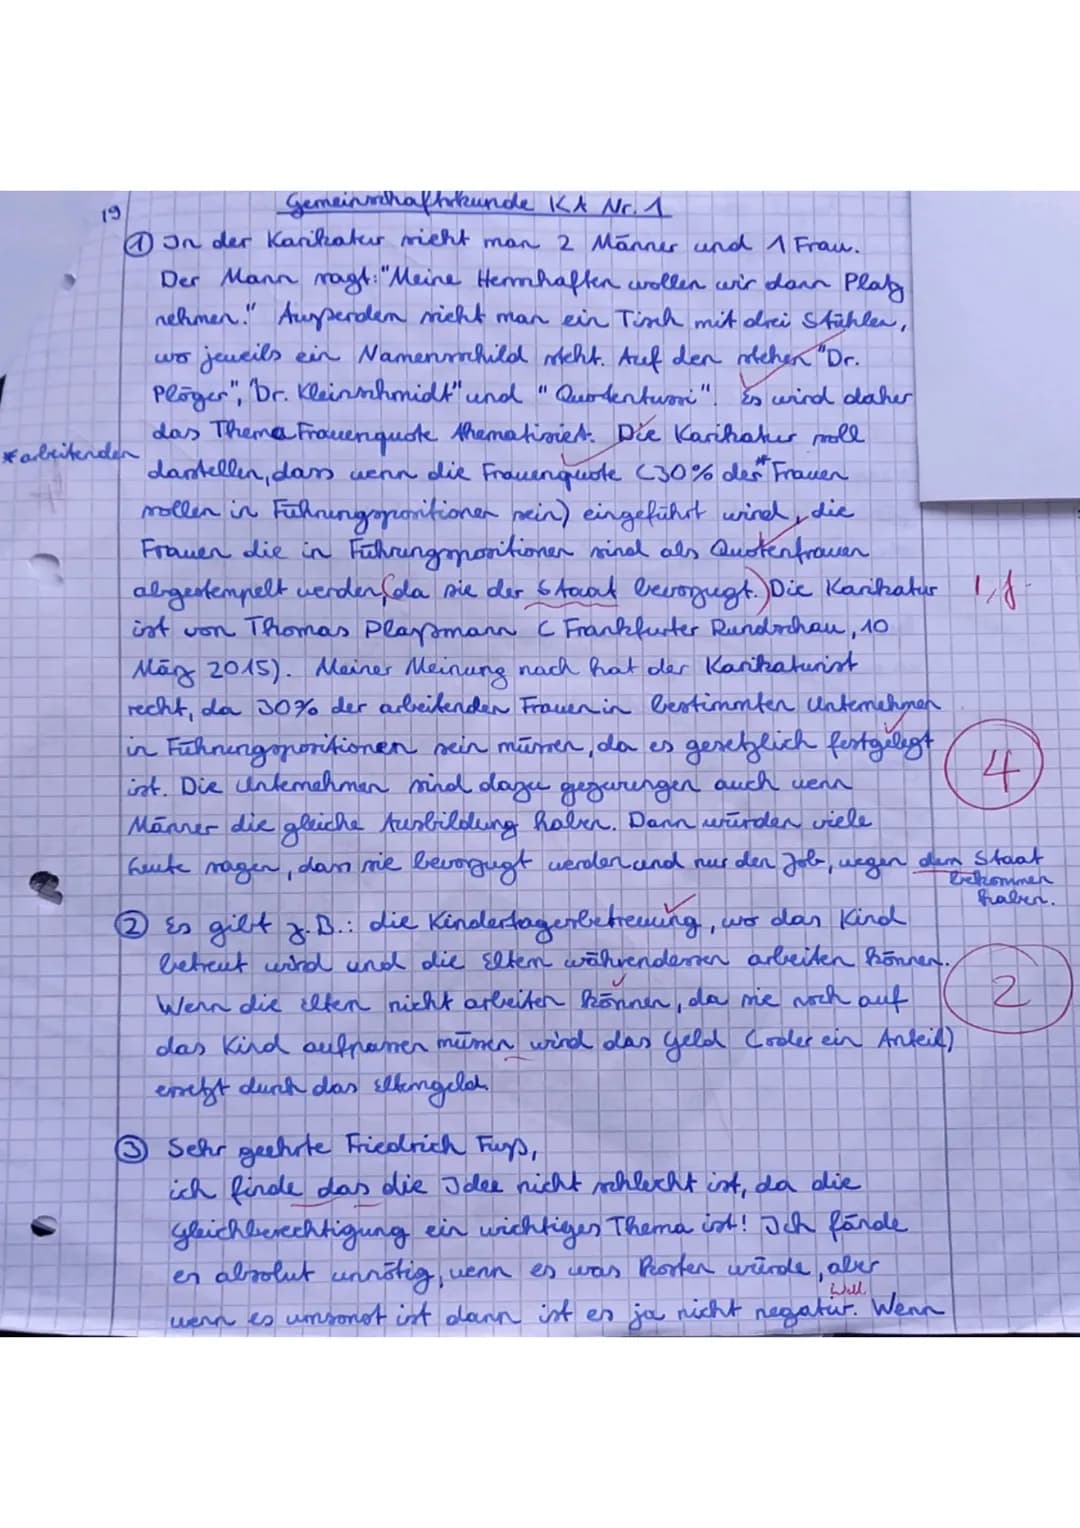 19
Gemeinschaftskunde KA Nr. 1
① In der Karikatur sieht man 2 Männer und 1 Frau.
Der Mann sagt: "Meine Herrschaften wollen wir dann Platz
nehmen." Ausserdem sieht man ein Tisch mit drei Stühlen,
wo jeweils ein Namensschild steht. Auf den stehen "Dr.
Plöger", "Dr. Kleinschmidt" und " ". Es wird daher
das Thema Frauenquote thematisiet. Die Karikatur soll
*arbeitenden
darstellen, dass wenn die Frauenquote (30% der* Frauen
sollen in Führungspositionen sein) eingeführt wird, die
Frauen die in Führungspositionen sind als Quotenfrauen
abgestempelt werden (da sie der Staat bevorzugt.) Die Karikatur
ist von Thomas Plaßmann (Frankfurter Rundschau, 10
März 2015). Meiner Meinung nach hat der Karikaturist
recht, da 30% der arbeitenden Frauen in bestimmten Unternehmen
in Führungspositionen sein müssen, da es gesetzlich festgelegt
4
ist. Die Unternehmen sind dazu gezwungen auch wenn
Männer die gleiche Ausbildung haben. Dann würden viele
Leute sagen, dass sie bevorzugt werden und nur den Job, wegen dem Staat
bekommen
haben.
② Es gibt z.B.: die Kindertagesbetreuung, wo das Kind
betreut wird und die Eltern währenddessen arbeiten können.
2
Wenn die Elten nicht arbeiten können, da sie noch auf
das Kind aufpassen müssen wird das Geld (oder ein Anteil)
ersetzt durch das Elterngeld.
③ Sehr geehrte Friedrich Fuß,
ich finde das die Idee nicht schlecht ist, da die
Gleichberechtigung ein wichtiges Thema ist! Ich fände
es absolut unnötig, wenn es was kosten würde, aber
wenn es umsonst ist dann ist es ja nicht negativ. Wenn